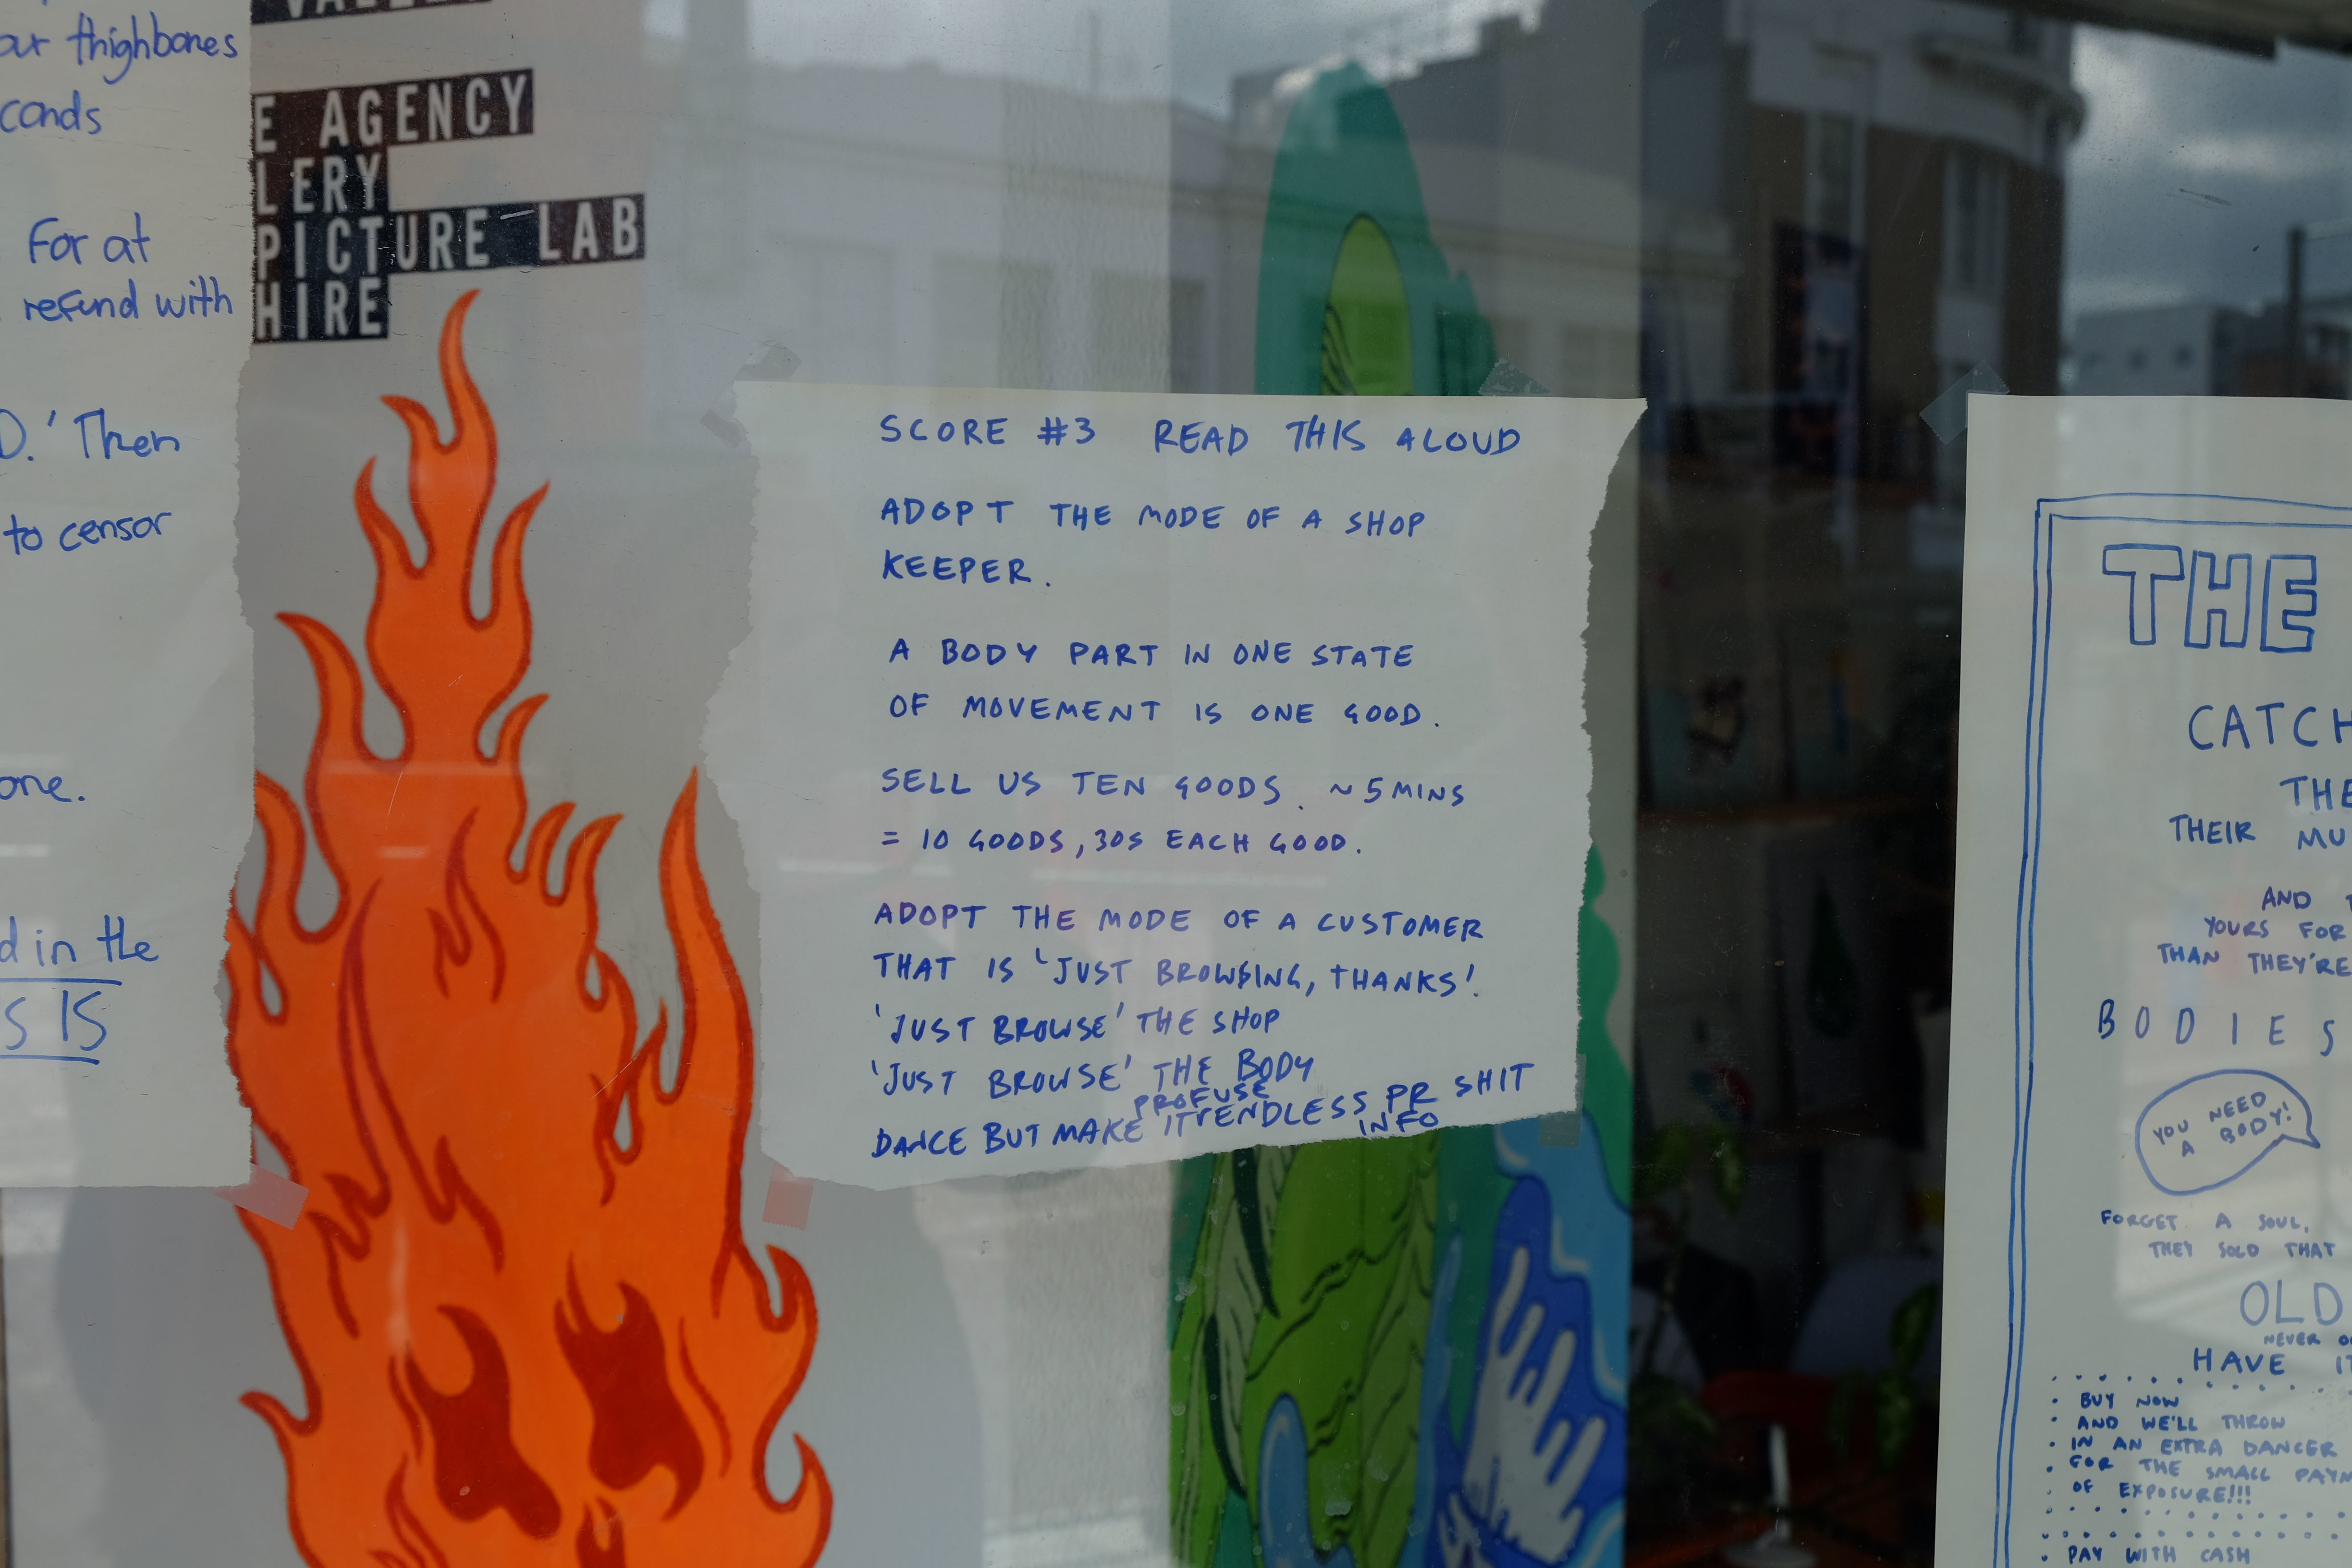 our thighbones
conds
For at
refund with
D.' Then
to censor
one.
d in the
S IS
E AGENCY
LERY
PICTURE LAB
HIRE
SCORE #3 READ THIS ALOUD
ADOPT THE MODE OF A SHOP
KEEPER.
A BODY PART IN ONE STATE
OF MOVEMENT IS ONE GOOD.
SELL US TEN GOODS. ~5MINS
= 10 GOODS, 30S EACH GOOD.
ADOPT THE MODE OF A CUSTOMER
THAT IS 'JUST BROWSING, THANKS'.
'JUST BROWSE' THE SHOP
'JUST BROWSE' THE BODY
PROFUSE
DANCE BUT MAKE IT ENDLESS PR SHIT
INFO
THE
CATCH
THE
THEIR MU
AND T
YOURS FOR
THAN THEY'RE
BODIES
YOU NEED
A BODY!
FORGET A SOUL,
THEY SOLD THAT
OLD
NEVER
HAVE IT
• BUY NOW
• AND WE'LL THROW
• IN AN EXTRA DANCER
• FOR THE SMALL PAYM
• OF EXPOSURE!!!
• PAY WITH CASH